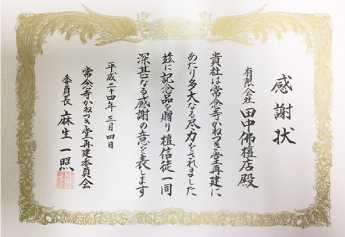 感謝状
有限会社 田中佛檀店殿
貴社は常念寺かねつき堂再建に
あたり多大なる尽力をされました
茲に記念品を贈り檀信徒一同
深甚なる感謝の意を表します
平成二十四年 三月四日
常念寺かねつき堂再建委員会
委員長 麻生一照